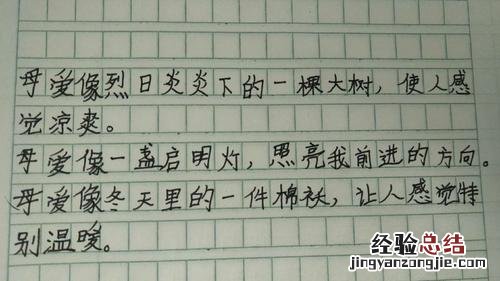 母爱像烈日炎炎下的一棵大树，使人感
觉凉爽。
母爱像一盏启明灯，照亮我前进的方向。
母爱像冬天里的一件棉袄，让人感觉特
别温暖。
经验总结
jingyanzongjie.com